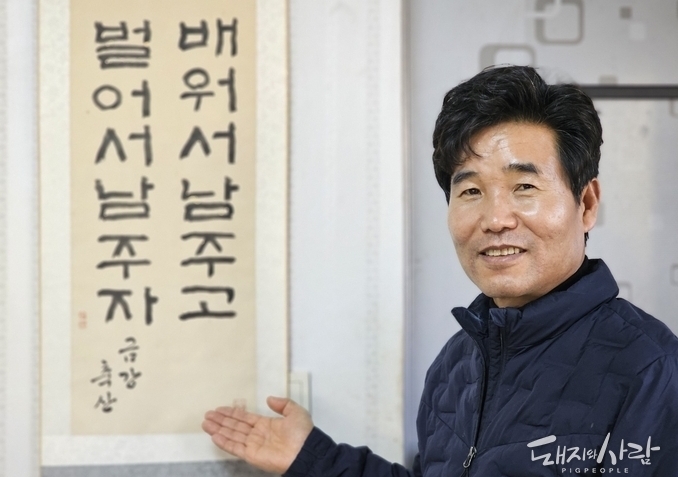 배워서남주고
벌어서남주자
금강
축산
돼지와사람
PIGPEOPLE